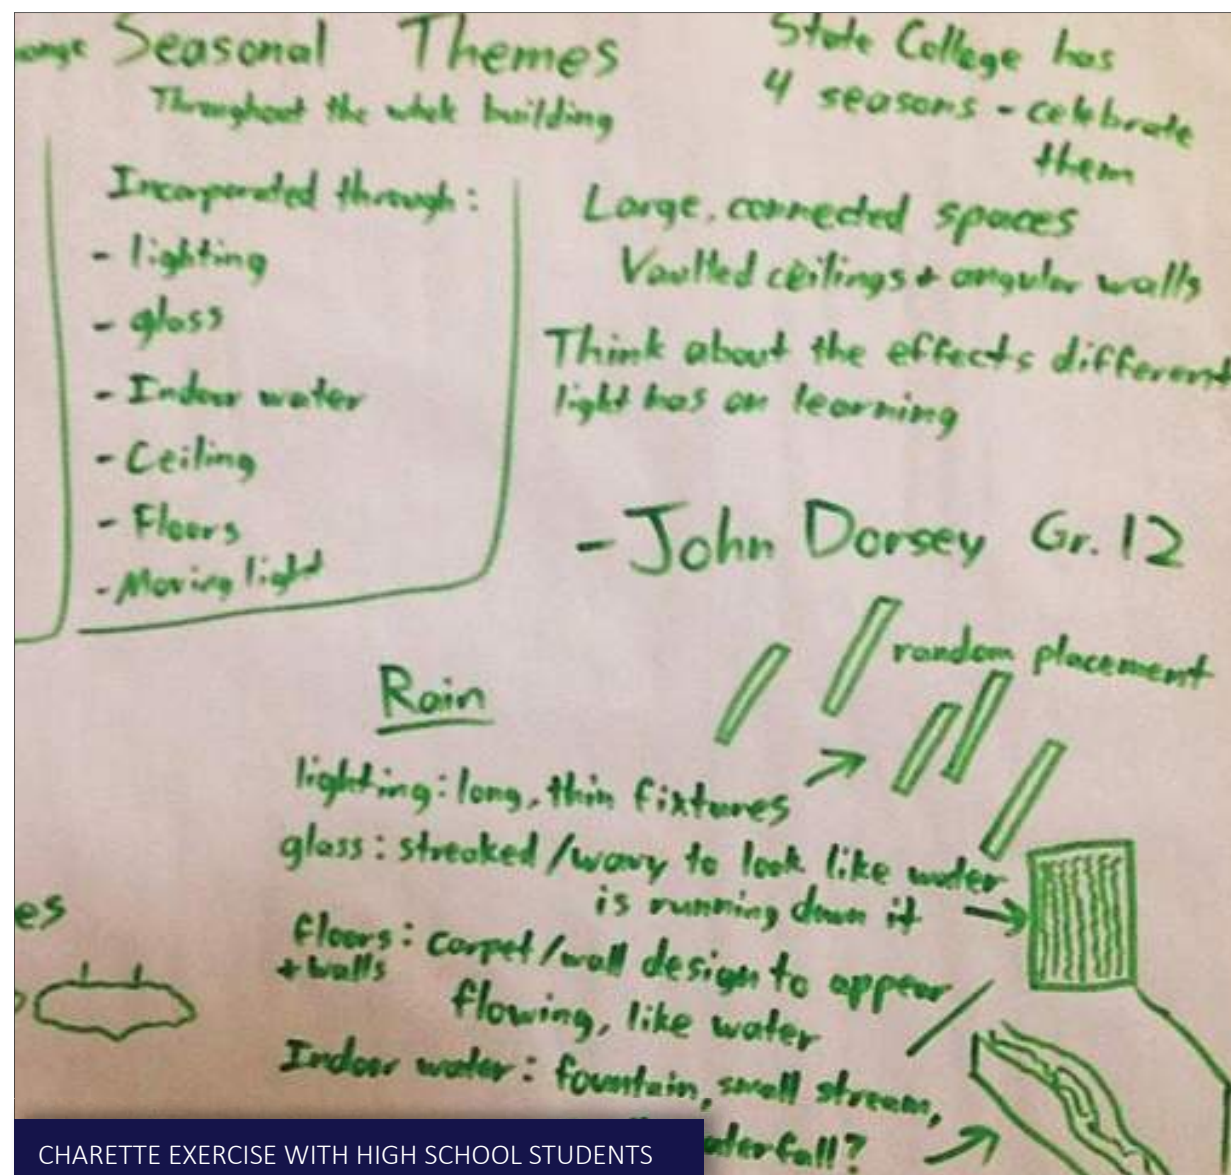 Seasonal Themes
Throughout the whole building
Incorporated through:
- lighting
- glass
- Indoor water
- Ceiling
- Floors
- Moving light
State College has
4 seasons - celebrate
them
Large, connected spaces
Vaulted ceilings + angular walls
Think about the effects different
light has on learning
- John Dorsey Gr. 12
random placement
Rain
lighting: long, thin fixtures
glass: streaked/wavy to look like water
is running down it
floors: carpet/wall design to appear
+ walls
flowing, like water
Indoor water: fountain, small stream,
CHARETTE EXERCISE WITH HIGH SCHOOL STUDENTS